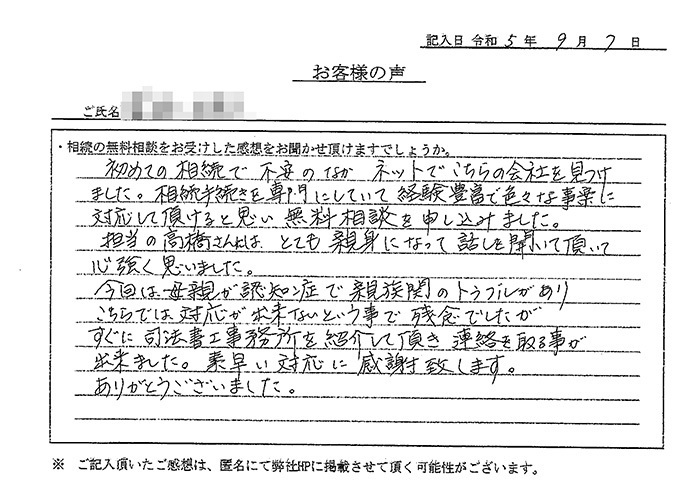 記入日 令和 5 年 9 月 7 日
お客様の声
ご氏名
・相続の無料相談をお受けした感想をお聞かせ頂けますでしょうか。
初めての相続で 不安のなか ネットでこちらの会社を見つけ
ました。相続手続きを専門にしていて 経験豊富で色々な事案に
対応して頂けると思い 無料相談を申し込みました。
担当の高橋さんは とても 親身になって 話しを聞いて頂いて
心強く思いました。
今回は母親が認知症で親族間のトラブルがあり
こちらでは対応が出来ないという事で 残念でしたが
すぐに司法書士事務所を紹介して頂き 連絡を取る事が
出来ました。素早い対応に 感謝致します。
ありがとうございました。
※ ご記入頂いたご感想は、匿名にて弊社HPに掲載させて頂く可能性がございます。